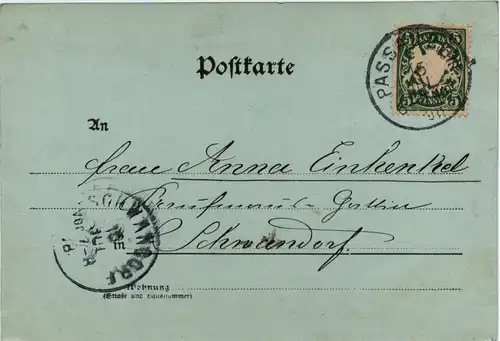 Postkarte
PASSAU
5 5
PFENNIG
An
Frau Anna Einkenkel
Kaufmanns-Gattin
in Schwandorf
SCHWANDORF
Wohnung
(Straße und Hausnummer)